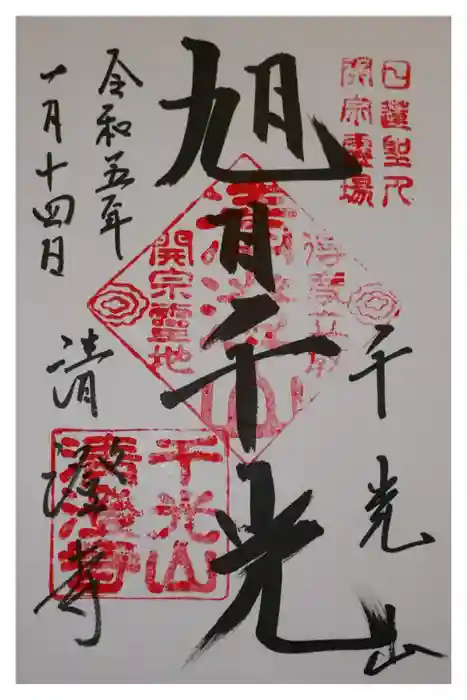 日蓮聖人
開宗霊場
千光山
旭日千光
開宗聖地
千光山
清澄寺
令和五年
十一月十四日
清澄寺